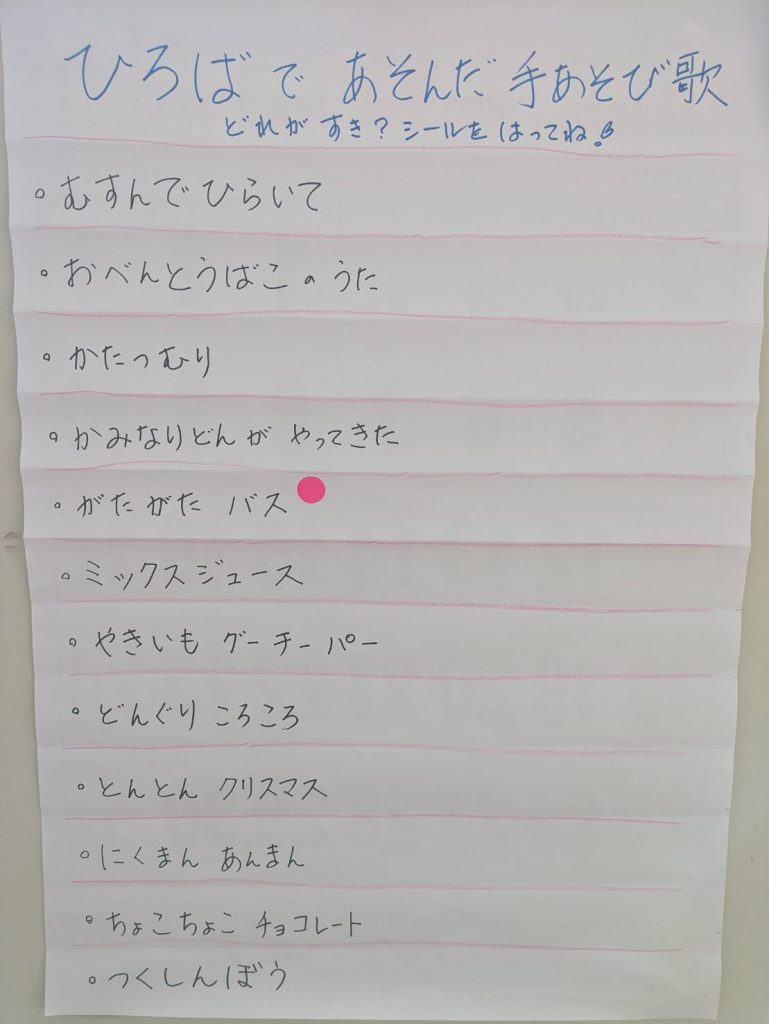 ひろばで あそんだ 手あそび歌
どれが すき? シールを はってね!
。むすんで ひらいて
。おべんとうばこの うた
。かたつむり
。かみなりどんが やってきた
。がたがた バス
。ミックスジュース
。やきいも グーチーパー
。どんぐり ころころ
。とんとん クリスマス
。にくまん あんまん
。ちょこちょこ チョコレート
。つくしんぼう